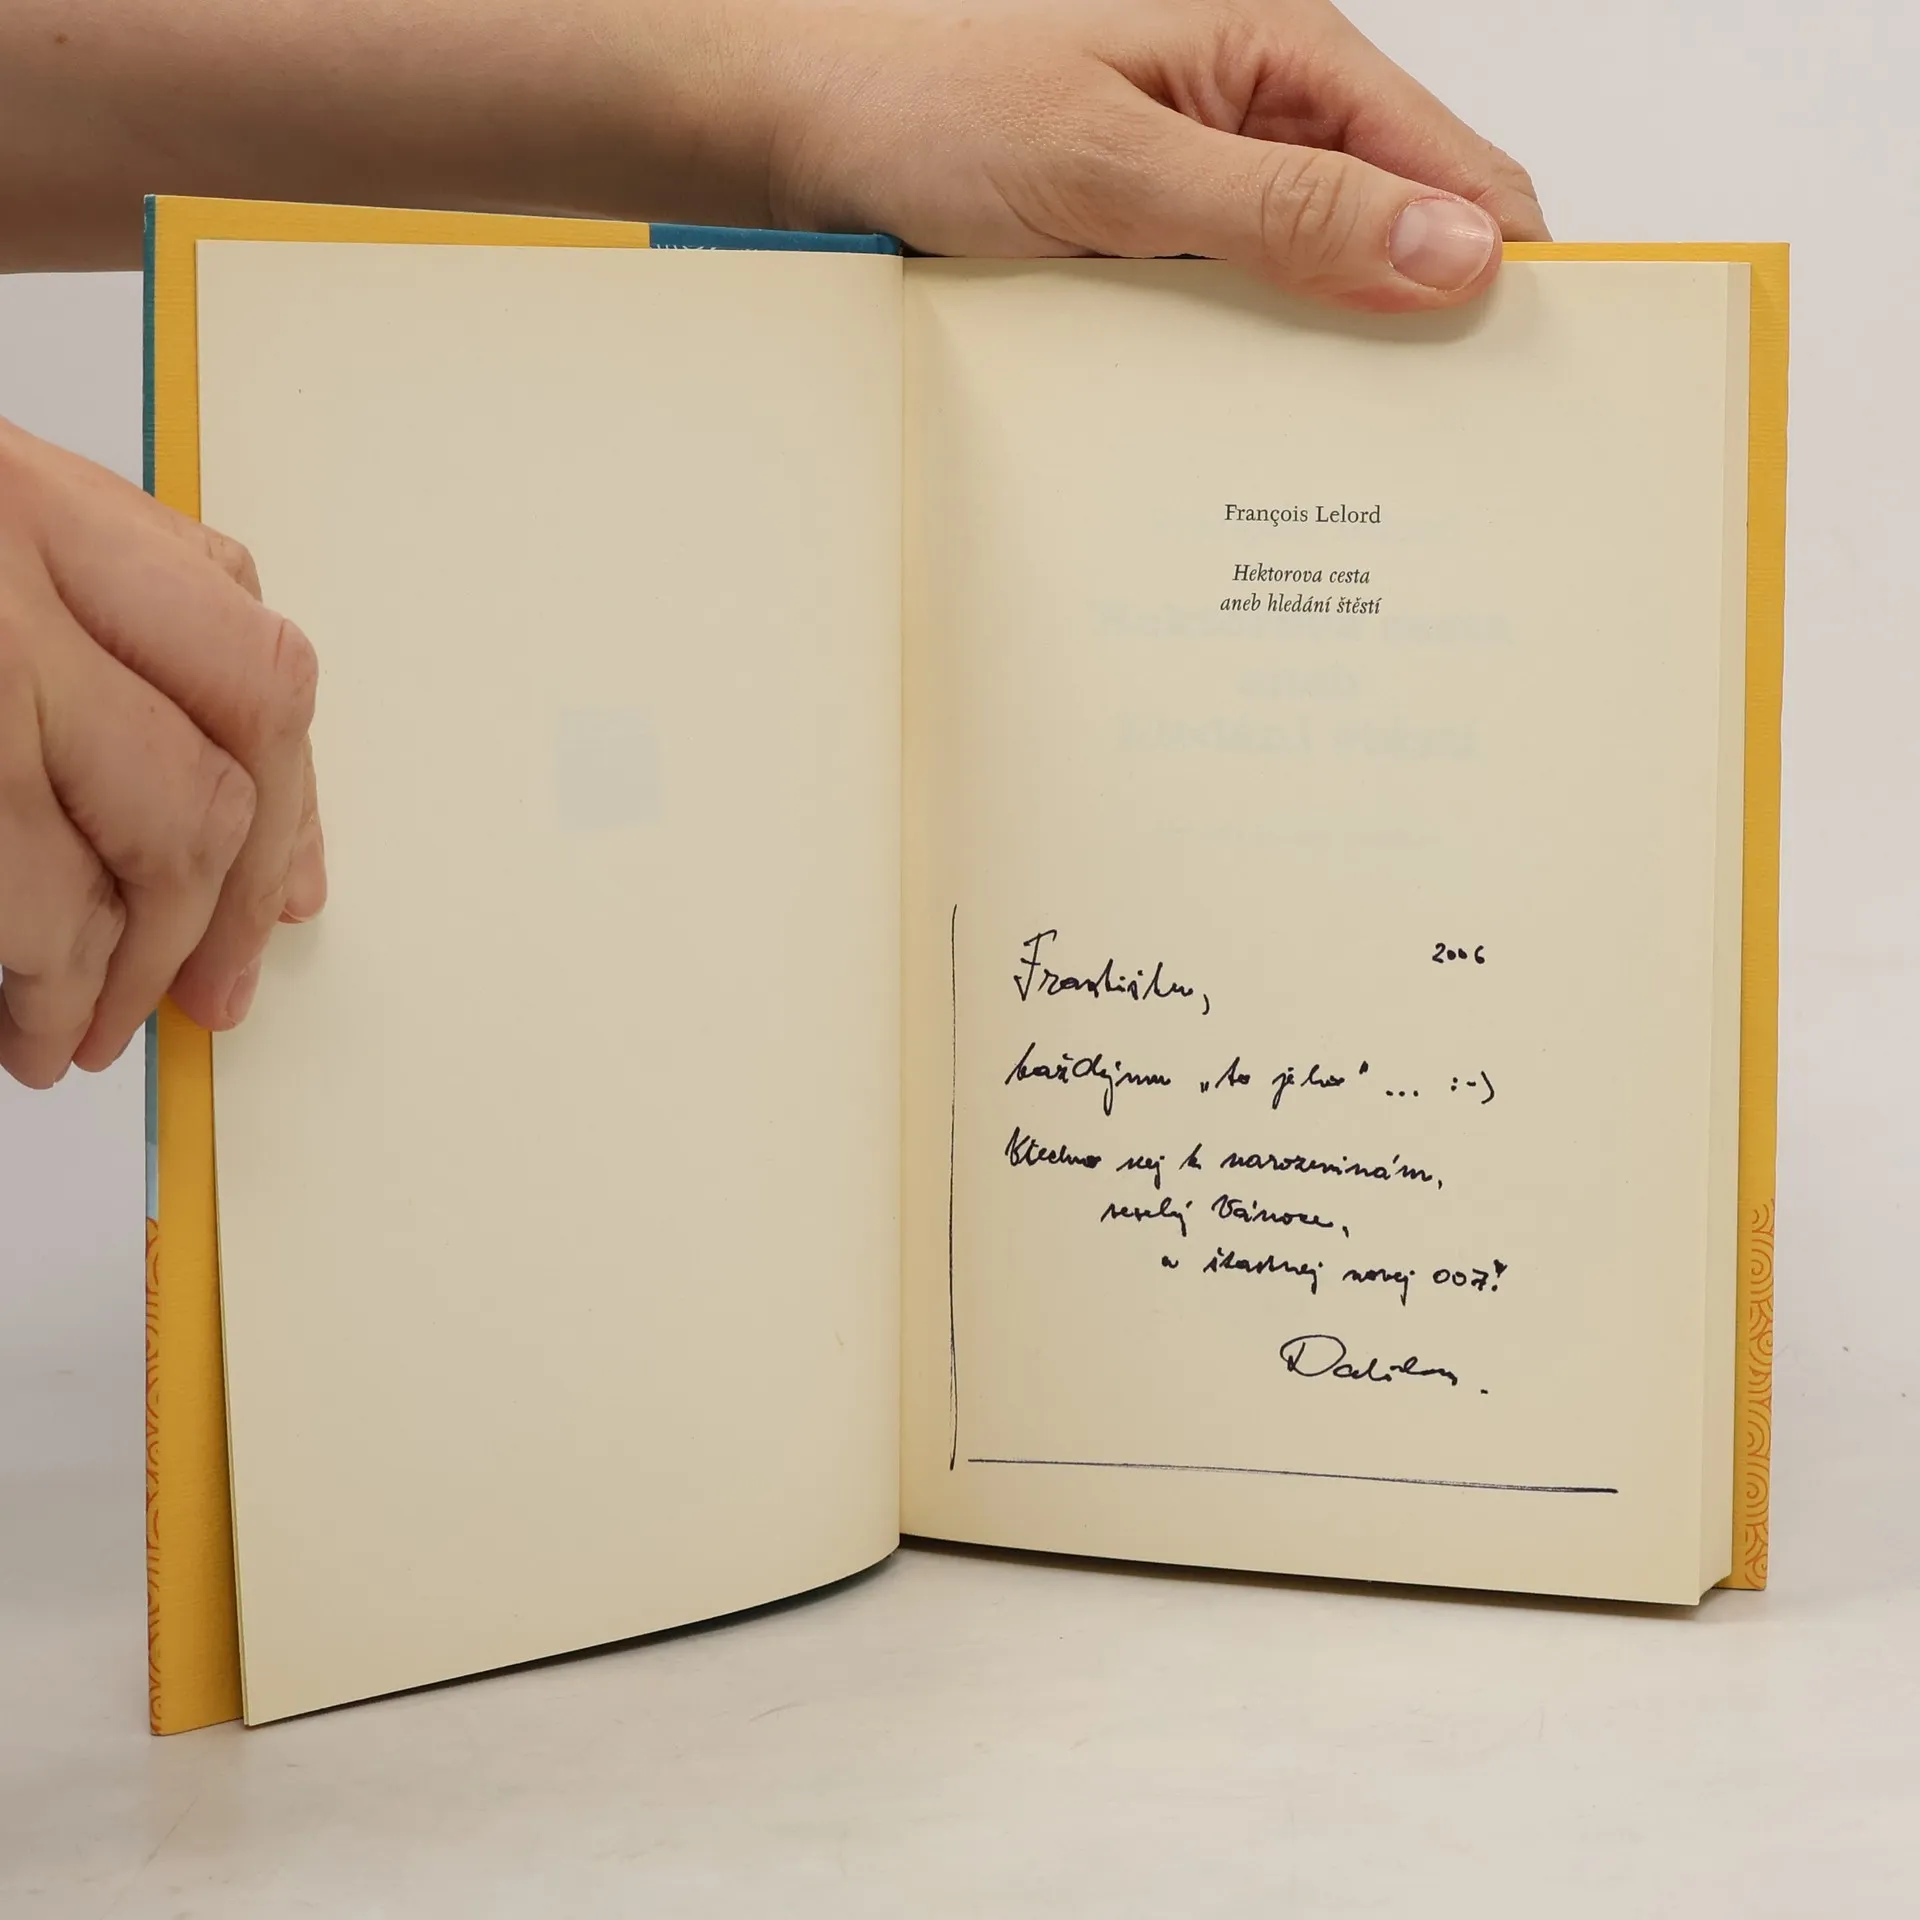 François Lelord
Hektorova cesta
aneb hledání štěstí
2006
Františku,
každýmu „to jeho" ... :-)
Všechno nej k narozeninám,
veselý Vánoce,
a šťastnej novej 007!